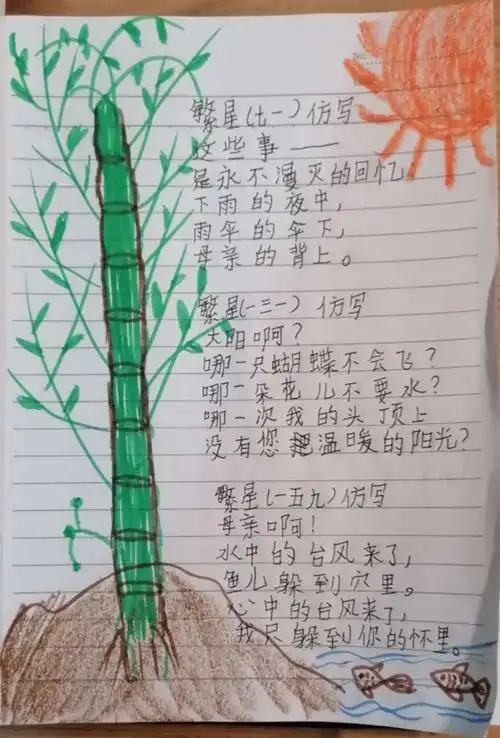 繁星(七一)仿写
这些事——
是永不漫灭的回忆
下雨的夜中，
雨伞的伞下，
母亲的背上。
繁星(一三一)仿写
太阳啊？
哪一只蝴蝶不会飞？
哪一朵花儿不要水？
哪一次我的头顶上
没有您把温暖的阳光？
繁星(一五九)仿写
母亲啊！
水中的台风来了，
鱼儿躲到穴里。
心中的台风来了，
我只躲到你的怀里。